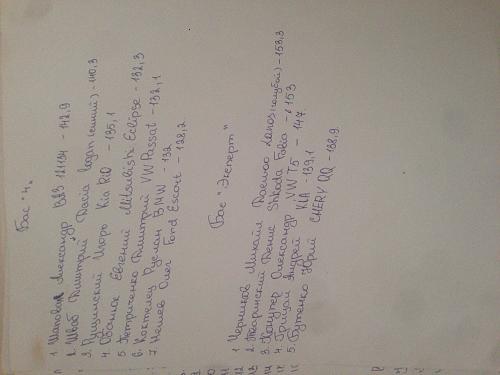 Бас "4"
1 Шаповал Александр ВАЗ 21134 - 142,9
2. Швов Дмитрий Dacia Logan (синий) - 140,3
3. Пушинский Игорь Kia Rio - 135,1
4. Евгений Mitsubishi Eclipse - 132,3
5 Петриченко Дмитрий VW Passat - 132,1
6. Руслан BMW - 132
7 Нешев Олег Ford Escort - 128,2
Бас "Эксперт"
1 Черников Михайл Daewoo Lanos (голубой) - 153,3
2. Денис Shkoda Fabia - 153
3. Александр VW T5 - 147
4. Грицай Андрей KIA - 139,1
5. Бутенко Юрий CHERY QQ - 138,9